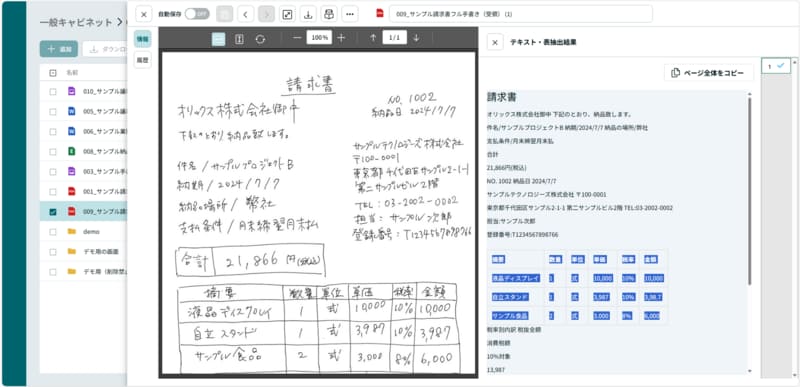 一般キャビネット
＋ 追加
ダウンロー
名前
010_サンプル議
005_サンプル議
006_サンプル業
008_サンプル納
003_サンプル手
001_サンプル請
009_サンプル請
demo
デモ用の画面
デモ用（削除禁止
自動保存
OFF
009_サンプル請求書フル手書き（受領） (1)
情報
履歴
100%
1/1
請求書
オリックス株式会社御中
下記のとおり納品致します。
件名/サンプルプロジェクトB
納期/2024/7/7
納品の場所/弊社
支払条件/月末締翌月末払
NO. 1002
納品日 2024/7/7
サンプルテクノロジーズ株式会社
〒100-0001
東京都千代田区サンプル2-1-1
第二サンプルビル2階
TEL: 03-2002-0002
担当: サンプル次郎
登録番号: T1234567898766
合計 21,866円(税込)
摘要 数量 単位 単価 税率 金額
液晶ディスプレイ 1 式 10,000 10% 10,000
自立スタンド 1 式 3,987 10% 3,987
サンプル食品 2 式 3,000 8% 6,000
テキスト・表抽出結果
ページ全体をコピー
請求書
オリックス株式会社御中 下記のとおり、納品致します。
件名/サンプルプロジェクトB 納期/2024/7/7 納品の場所/弊社
支払条件/月末締翌月末払
合計
21,866円(税込)
NO. 1002 納品日 2024/7/7
サンプルテクノロジーズ株式会社 〒100-0001
東京都千代田区サンプル2-1-1 第二サンプルビル2階 TEL:03-2002-0002
担当:サンプル次郎
登録番号:T1234567898766
摘要 数量 単位 単価 税率 金額
液晶ディスプレイ 1 式 10,000 10% 10,000
自立スタンド 1 式 3,987 10% 3,98.7
サンプル食品 2 式 3.000 8% 6,000
税率別内訳 税抜金額
消費税額
10%対象
13,987
1